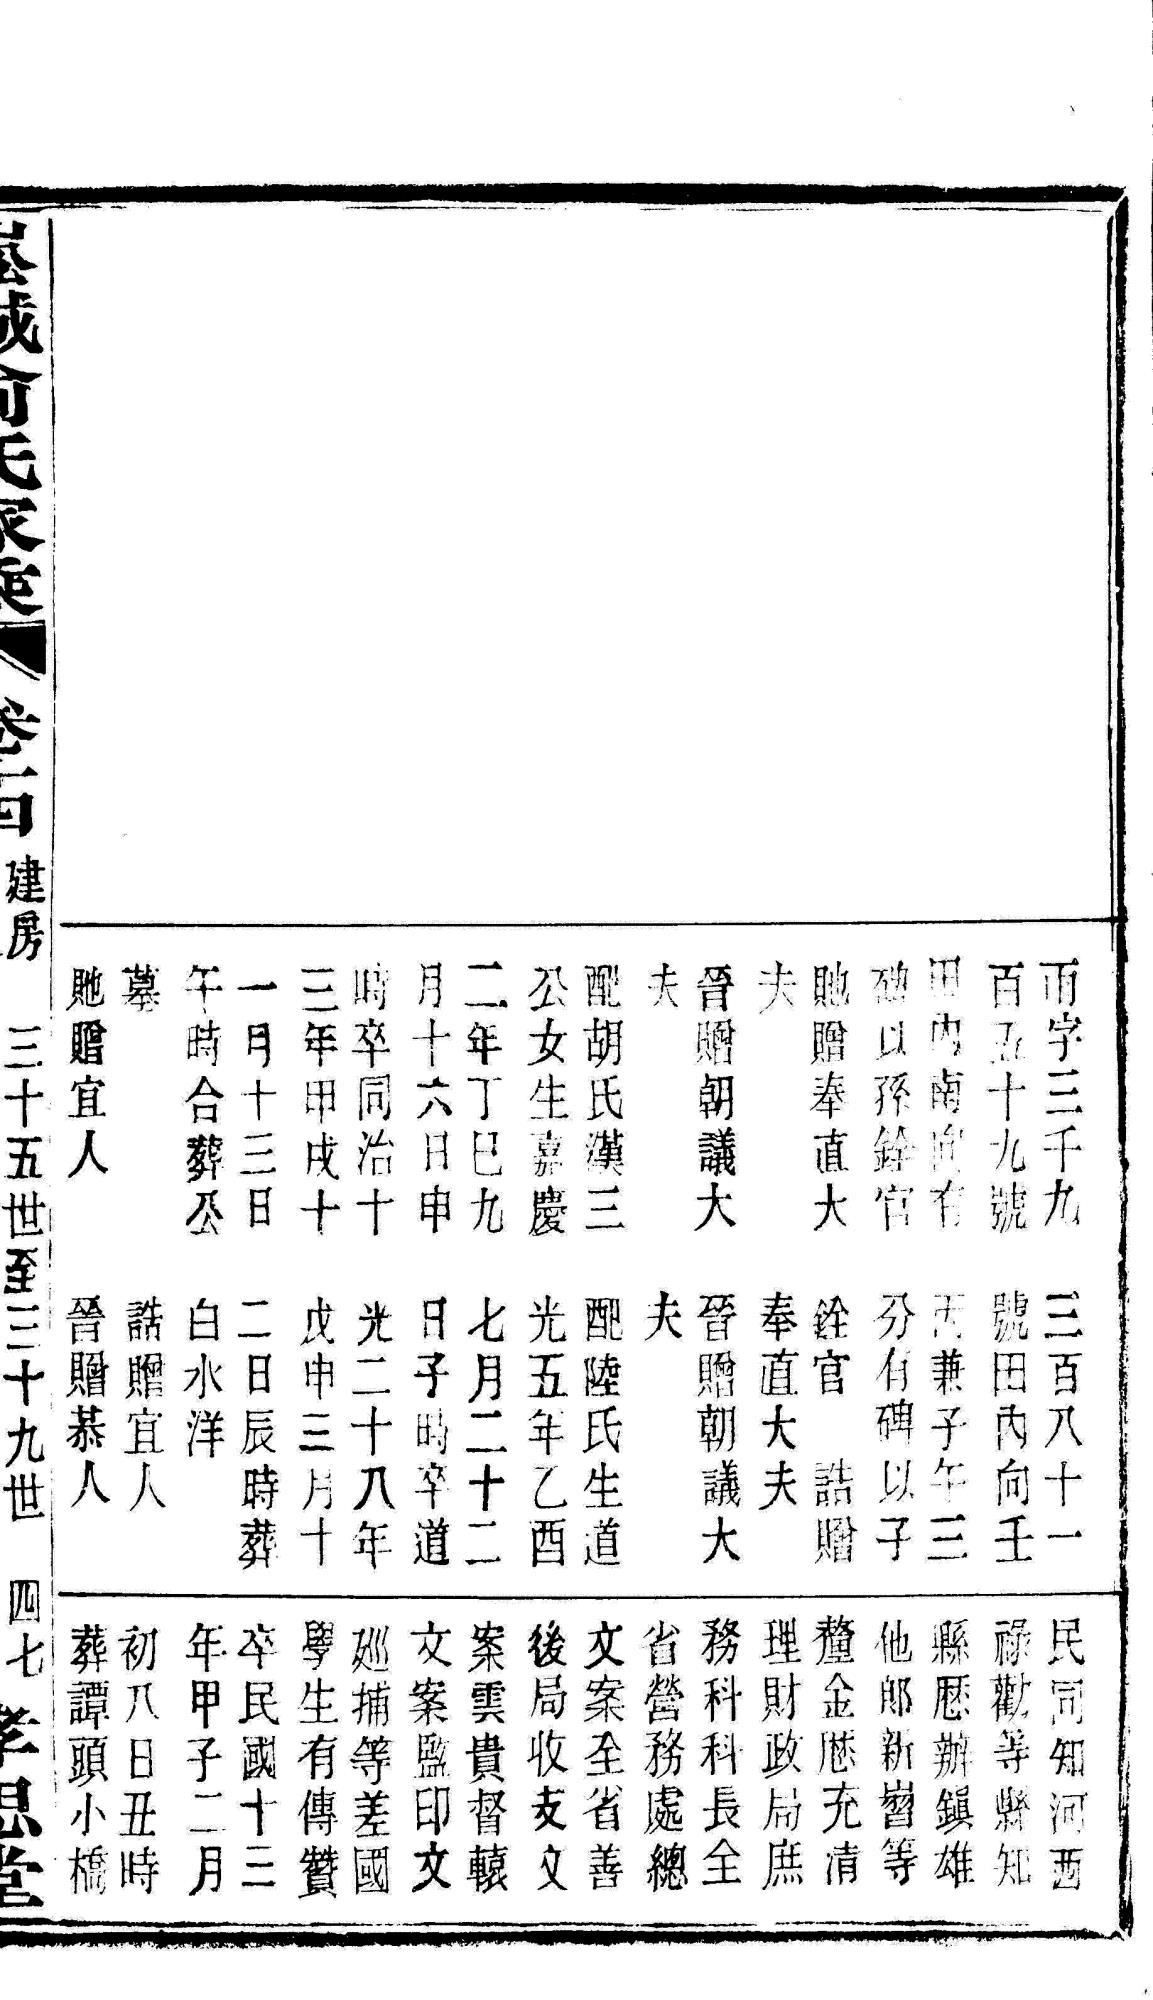 雨字三千九
百五十九號
田內南向有
碑以孫銓官
貤贈奉直大
夫
晉贈朝議大
夫
配胡氏漢三
公女生嘉慶
二年丁巳九
月十六日申
時卒同治十
三年甲戌十
一月十三日
午時合葬公
墓
貤贈宜人
三百八十一
號田內向壬
丙兼子午三
分有碑以子
銓官　誥贈
奉直大夫
晉贈朝議大
夫
配陸氏生道
光五年乙酉
七月二十二
日子時卒道
光二十八年
戊申三月十
二日辰時葬
白水洋
誥贈宜人
晉贈恭人
民同知河西
祿勸等縣知
縣歷辦鎮雄
他郎新嶍等
釐金歷充清
理財政局庶
務科科長全
省營務處總
文案全省善
後局收支文
案雲貴督轅
文案監印文
廵捕等差國
學生有傳贊
卒民國十三
年甲子二月
初八日丑時
葬譚頭小橋
城俞氏家乘 卷十四 建房 三十五世至三十九世 四七 孝思堂